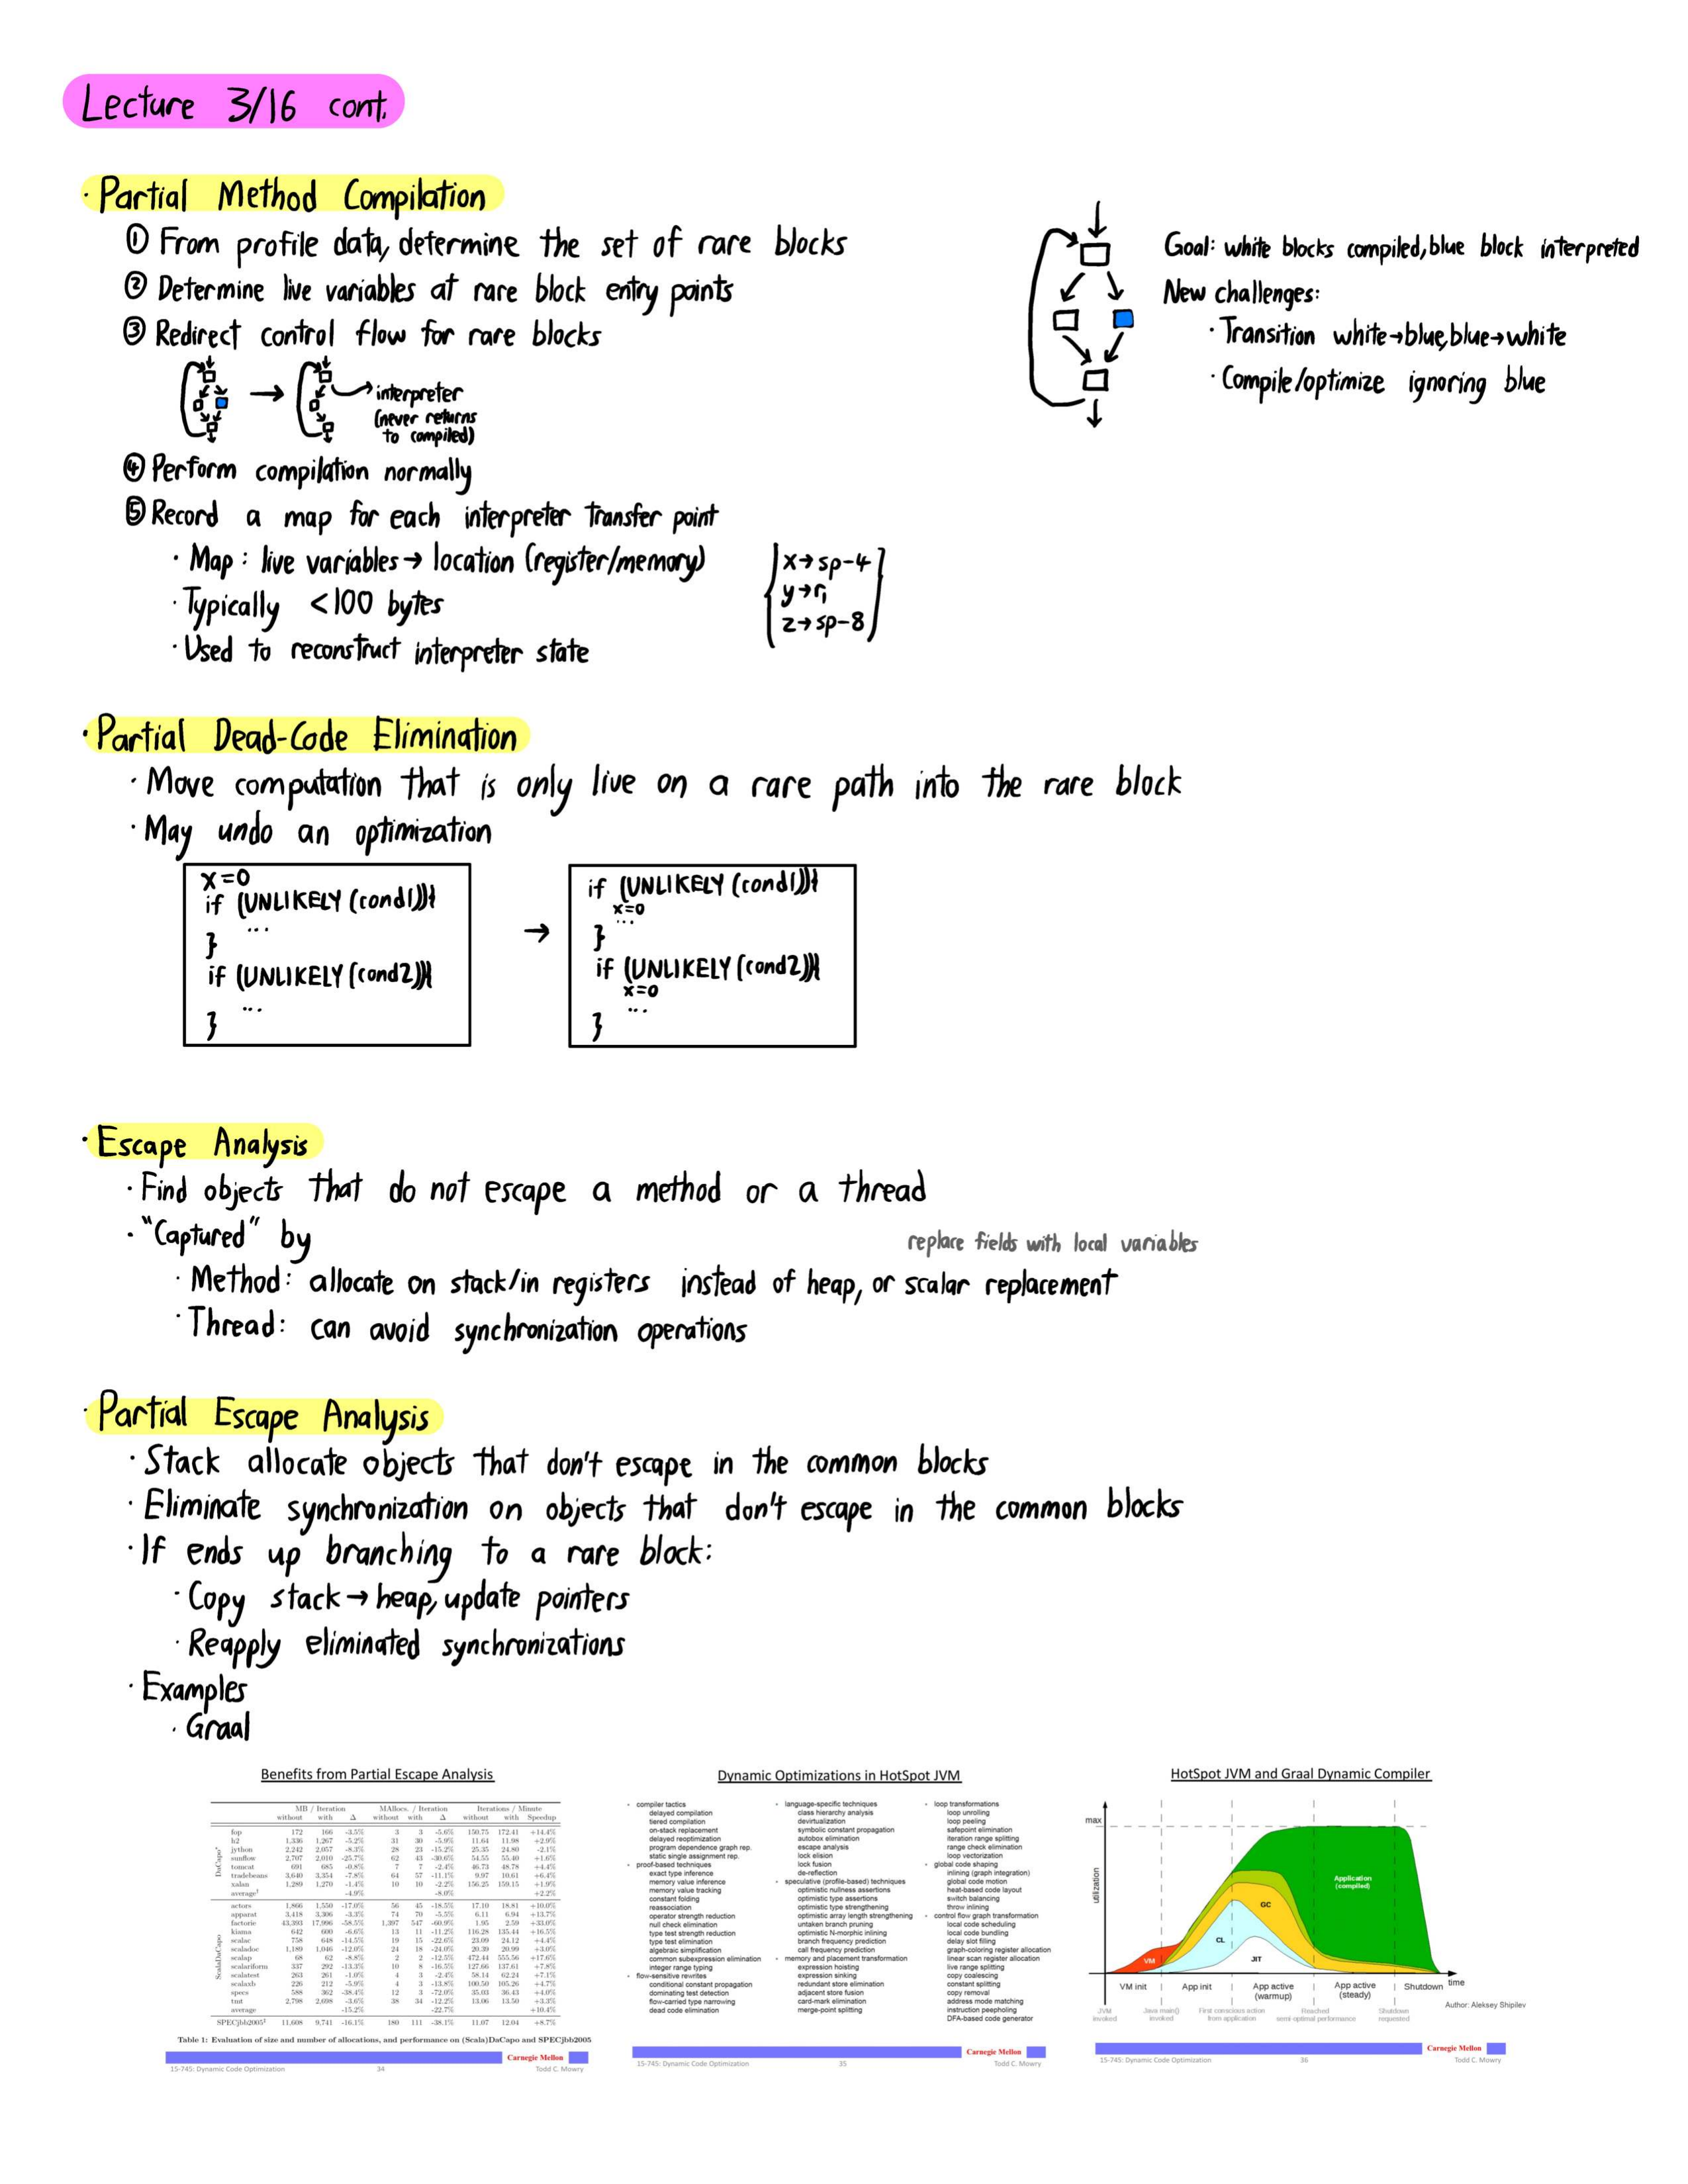 Lecture 3/16 cont.
· Partial Method Compilation
① From profile data, determine the set of rare blocks
② Determine live variables at rare block entry points
③ Redirect control flow for rare blocks
→ interpreter
(never returns
to compiled)
④ Perform compilation normally
⑤ Record a map for each interpreter transfer point
· Map: live variables → location (register/memory)
· Typically <100 bytes
· Used to reconstruct interpreter state
x→sp-4
y→r₁
z→sp-8
Goal: white blocks compiled, blue block interpreted
New challenges:
· Transition white→blue, blue→white
· Compile/optimize ignoring blue
· Partial Dead-Code Elimination
· Move computation that is only live on a rare path into the rare block
· May undo an optimization
x=0
if (UNLIKELY(cond1)){
...
}
if (UNLIKELY(cond2)){
...
}
→
if (UNLIKELY(cond1)){
x=0
...
}
if (UNLIKELY(cond2)){
x=0
...
}
· Escape Analysis
· Find objects that do not escape a method or a thread
· "Captured" by
replace fields with local variables
· Method: allocate on stack/in registers instead of heap, or scalar replacement
· Thread: can avoid synchronization operations
· Partial Escape Analysis
· Stack allocate objects that don't escape in the common blocks
· Eliminate synchronization on objects that don't escape in the common blocks
· If ends up branching to a rare block:
· Copy stack → heap, update pointers
· Reapply eliminated synchronizations
· Examples
· Graal
Benefits from Partial Escape Analysis
MB / Iteration MAllocs. / Iteration Iterations / Minute
without with Δ without with Δ without with Speedup
DaCapo
fop 172 166 -3.5% 3 3 -5.6% 150.75 172.41 +14.4%
h2 1,336 1,267 -5.2% 31 30 -5.9% 11.64 11.98 +2.9%
jython 2,242 2,057 -8.3% 28 23 -15.2% 25.35 24.80 -2.1%
sunflow 2,707 2,010 -25.7% 62 43 -30.6% 54.55 55.40 +1.6%
tomcat 691 685 -0.8% 7 7 -2.4% 46.73 48.78 +4.4%
tradebeans 3,640 3,354 -7.8% 64 57 -11.1% 9.97 10.61 +6.4%
xalan 1,289 1,270 -1.4% 10 10 -2.2% 156.25 159.15 +1.9%
average -4.9% -8.0% +2.2%
ScalaDaCapo
actors 1,866 1,550 -17.0% 56 45 -18.5% 17.10 18.81 +10.0%
apparat 3,418 3,306 -3.3% 74 70 -5.5% 6.11 6.94 +13.7%
factorie 43,393 17,996 -58.5% 1,397 547 -60.9% 1.95 2.59 +33.0%
kiama 642 600 -6.6% 13 11 -11.2% 116.28 135.44 +16.5%
scalac 758 648 -14.5% 19 15 -22.6% 23.09 24.12 +4.4%
scaladoc 1,189 1,046 -12.0% 24 18 -24.0% 20.39 20.99 +3.0%
scalap 68 62 -8.8% 2 2 -12.5% 472.44 555.56 +17.6%
scalariform 337 292 -13.3% 10 8 -16.5% 127.66 137.61 +7.8%
scalatest 263 261 -1.0% 4 3 -2.4% 58.14 62.24 +7.1%
scalaxb 226 212 -5.9% 4 3 -13.8% 100.50 105.26 +4.7%
specs 588 362 -38.4% 12 3 -72.0% 35.03 36.43 +4.0%
tmt 2,798 2,698 -3.6% 38 34 -12.2% 13.06 13.50 +3.3%
average -15.2% -22.7% +10.4%
SPECjbb2005 11,608 9,741 -16.1% 180 111 -38.1% 11.07 12.04 +8.7%
Table 1: Evaluation of size and number of allocations, and performance on (Scala)DaCapo and SPECjbb2005
Carnegie Mellon
15-745: Dynamic Code Optimization 34 Todd C. Mowry
Dynamic Optimizations in HotSpot JVM
• compiler tactics
delayed compilation
tiered compilation
on-stack replacement
delayed reoptimization
program dependence graph rep.
static single assignment rep.
• proof-based techniques
exact type inference
memory value inference
memory value tracking
constant folding
reassociation
operator strength reduction
null check elimination
type test strength reduction
type test elimination
algebraic simplification
common subexpression elimination
integer range typing
• flow-sensitive rewrites
conditional constant propagation
dominating test detection
flow-carried type narrowing
dead code elimination
• language-specific techniques
class hierarchy analysis
devirtualization
symbolic constant propagation
autobox elimination
escape analysis
lock elision
lock fusion
de-reflection
• speculative (profile-based) techniques
optimistic nullness assertions
optimistic type assertions
optimistic type strengthening
optimistic array length strengthening
untaken branch pruning
optimistic N-morphic inlining
branch frequency prediction
call frequency prediction
• memory and placement transformation
expression hoisting
expression sinking
redundant store elimination
adjacent store fusion
card-mark elimination
merge-point splitting
• loop transformations
loop unrolling
loop peeling
safepoint elimination
iteration range splitting
range check elimination
loop vectorization
• global code shaping
inlining (graph integration)
global code motion
heat-based code layout
switch balancing
throw inlining
• control flow graph transformation
local code scheduling
local code bundling
delay slot filling
graph-coloring register allocation
linear scan register allocation
live range splitting
copy coalescing
constant splitting
copy removal
address mode matching
instruction peepholing
DFA-based code generator
Carnegie Mellon
15-745: Dynamic Code Optimization 35 Todd C. Mowry
HotSpot JVM and Graal Dynamic Compiler
max
utilization
Application
(compiled)
GC
CL
VM
JIT
time
VM init App init App active (warmup) App active (steady) Shutdown
JVM invoked
Java main() invoked
First conscious action from application
Reached semi-optimal performance
Shutdown requested
Author: Aleksey Shipilev
Carnegie Mellon
15-745: Dynamic Code Optimization 36 Todd C. Mowry